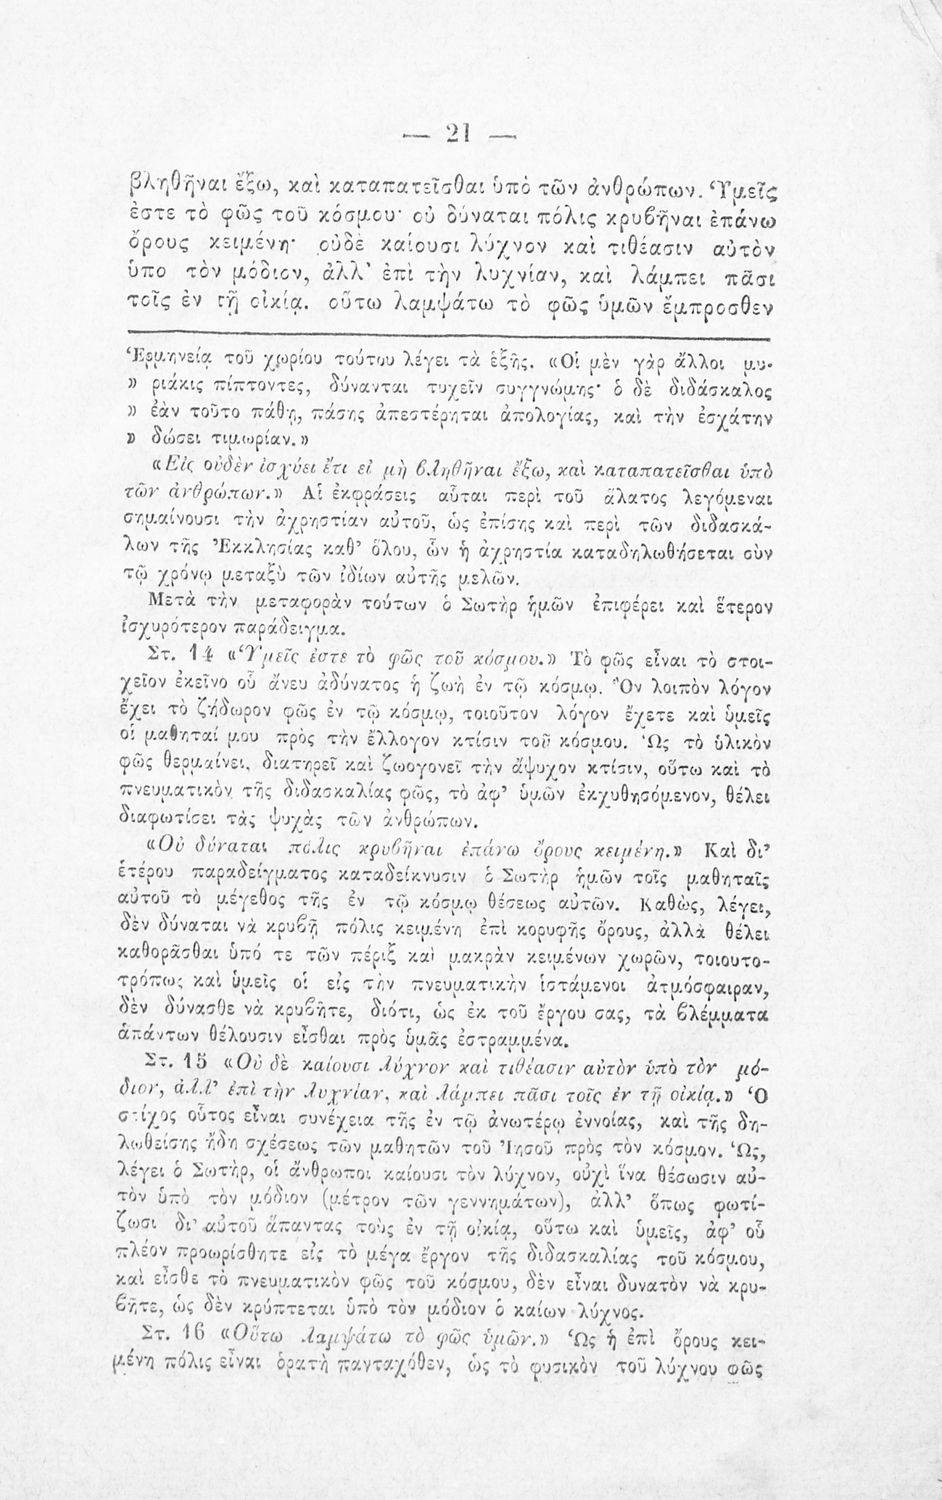 — 21 —
βληθῆναι ἔξω, καὶ καταπατεῖσθαι ὑπὸ τῶν ἀνθρώπων. Ὑμεῖς
ἐστε τὸ φῶς τοῦ κόσμου· οὐ δύναται πόλις κρυβῆναι ἐπάνω
ὄρους κειμένη· οὐδὲ καίουσι λύχνον καὶ τιθέασιν αὐτὸν
ὑπο τὸν μόδιον, ἀλλ’ ἐπὶ τὴν λυχνίαν, καὶ λάμπει πᾶσι
τοῖς ἐν τῇ οἰκίᾳ. οὕτω λαμψάτω τὸ φῶς ὑμῶν ἔμπροσθεν
Ἑρμηνείᾳ τοῦ χωρίου τούτου λέγει τὰ ἑξῆς. «Οἱ μὲν γὰρ ἄλλοι μυ-
» ριάκις πίπτοντες, δύνανται τυχεῖν συγγνώμης· ὁ δὲ διδάσκαλος
» ἐὰν τοῦτο πάθῃ, πάσης ἀπεστέρηται ἀπολογίας, καὶ τὴν ἐσχάτην
» δώσει τιμωρίαν.»
«Εἰς οὐδὲν ἰσχύει ἔτι εἰ μὴ βληθῆναι ἔξω, καὶ καταπατεῖσθαι ὑπὸ
τῶν ἀνθρώπων.» Αἱ ἐκφράσεις αὗται περὶ τοῦ ἅλατος λεγόμεναι
σημαίνουσι τὴν ἀχρηστίαν αὐτοῦ, ὡς ἐπίσης καὶ περὶ τῶν διδασκά-
λων τῆς Ἐκκλησίας καθ’ ὅλου, ὧν ἡ ἀχρηστία καταδηλωθήσεται σὺν
τῷ χρόνῳ μεταξὺ τῶν ἰδίων αὐτῆς μελῶν.
Μετὰ τὴν μεταφορὰν τούτων ὁ Σωτὴρ ἡμῶν ἐπιφέρει καὶ ἕτερον
ἰσχυρότερον παράδειγμα.
Στ. 14 «Ὑμεῖς ἐστε τὸ φῶς τοῦ κόσμου.» Τὸ φῶς εἶναι τὸ στοι-
χεῖον ἐκεῖνο οὗ ἄνευ ἀδύνατος ἡ ζωὴ ἐν τῷ κόσμῳ. Ὃν λοιπὸν λόγον
ἔχει τὸ ζήδωρον φῶς ἐν τῷ κόσμῳ, τοιοῦτον λόγον ἔχετε καὶ ὑμεῖς
οἱ μαθηταί μου πρὸς τὴν ἔλλογον κτίσιν τοῦ κόσμου. Ὡς τὸ ὑλικὸν
φῶς θερμαίνει, διατηρεῖ καὶ ζωογονεῖ τὴν ἄψυχον κτίσιν, οὕτω καὶ τὸ
πνευματικὸν τῆς διδασκαλίας φῶς, τὸ ἀφ’ ὑμῶν ἐκχυθησόμενον, θέλει
διαφωτίσει τὰς ψυχὰς τῶν ἀνθρώπων.
«Οὐ δύναται πόλις κρυβῆναι ἐπάνω ὄρους κειμένη.» Καὶ δι’
ἑτέρου παραδείγματος καταδείκνυσιν ὁ Σωτὴρ ἡμῶν τοῖς μαθηταῖς
αὐτοῦ τὸ μέγεθος τῆς ἐν τῷ κόσμῳ θέσεως αὐτῶν. Καθὼς, λέγει,
δὲν δύναται νὰ κρυβῇ πόλις κειμένη ἐπὶ κορυφῆς ὄρους, ἀλλὰ θέλει
καθορᾶσθαι ὑπό τε τῶν πέριξ καὶ μακρὰν κειμένων χωρῶν, τοιουτο-
τρόπως καὶ ὑμεῖς οἱ εἰς τὴν πνευματικὴν ἱστάμενοι ἀτμόσφαιραν,
δὲν δύνασθε νὰ κρυβῆτε, διότι, ὡς ἐκ τοῦ ἔργου σας, τὰ βλέμματα
ἁπάντων θέλουσιν εἶσθαι πρὸς ὑμᾶς ἐστραμμένα.
Στ. 15 «Οὐ δὲ καίουσι λύχνον καὶ τιθέασιν αὐτὸν ὑπὸ τὸν μό-
διον, ἀλλ’ ἐπὶ τὴν λυχνίαν, καὶ λάμπει πᾶσι τοῖς ἐν τῇ οἰκίᾳ.» Ὁ
στίχος οὗτος εἶναι συνέχεια τῆς ἐν τῷ ἀνωτέρῳ ἐννοίας, καὶ τῆς δη-
λωθείσης ἤδη σχέσεως τῶν μαθητῶν τοῦ Ἰησοῦ πρὸς τὸν κόσμον. Ὡς,
λέγει ὁ Σωτὴρ, οἱ ἄνθρωποι καίουσι τὸν λύχνον, οὐχὶ ἵνα θέσωσιν αὐ-
τὸν ὑπὸ τὸν μόδιον (μέτρον τῶν γεννημάτων), ἀλλ’ ὅπως φωτί-
ζωσι δι’ αὐτοῦ ἅπαντας τοὺς ἐν τῇ οἰκίᾳ, οὕτω καὶ ὑμεῖς, ἀφ’ οὗ
πλέον προωρίσθητε εἰς τὸ μέγα ἔργον τῆς διδασκαλίας τοῦ κόσμου,
καὶ εἶσθε τὸ πνευματικὸν φῶς τοῦ κόσμου, δὲν εἶναι δυνατὸν νὰ κρυ-
βῆτε, ὡς δὲν κρύπτεται ὑπὸ τὸν μόδιον ὁ καίων λύχνος.
Στ. 16 «Οὕτω λαμψάτω τὸ φῶς ὑμῶν.» Ὡς ἡ ἐπὶ ὄρους κει-
μένη πόλις εἶναι ὁρατὴ πανταχόθεν, ὡς τὸ φυσικὸν τοῦ λύχνου φῶς